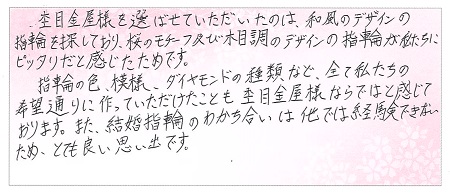 杢目金屋様を選ばせていただいたのは、和風のデザインの
指輪を探しており、桜のモチーフ及び木目調のデザインの指輪が私たちに
ピッタリだと感じたためです。
指輪の色、模様、ダイヤモンドの種類など、全て私たちの
希望通りに作っていただけたことも杢目金屋様ならではと感じて
おります。また、結婚指輪のわかち合いは他では経験できない
ため、とても良い思い出です。